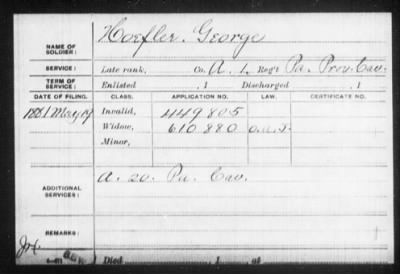 Hoefler. George
NAME OF SOLDIER:
SERVICE: Late rank, Co. A. 1, Reg't Pa. Prov. Cav.
TERM OF SERVICE: Enlisted , 1 Discharged , 1
DATE OF FILING. CLASS. APPLICATION NO. LAW. CERTIFICATE NO.
1881 May 19 Invalid, 449805
Widow, 610.880
Minor,
A. 20. Pa. Cav.
ADDITIONAL SERVICES:
REMARKS:
Died , 1 , at